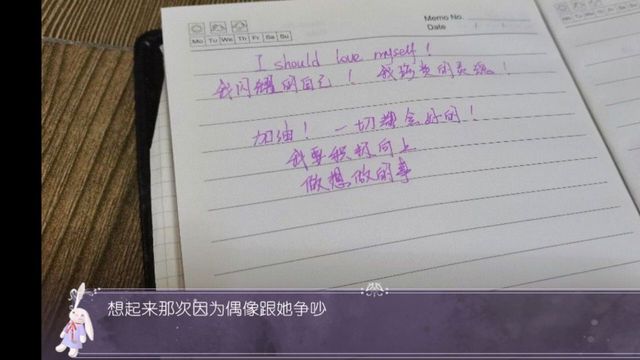 Memo No.
Mo Tu We Th Fr Sa Su
Date
I should love myself!
我闪耀的自己! 我珍贵的灵魂。!
加油! 一切都会好的!
我要积极向上
做想做的事
想起来那次因为偶像跟她争吵